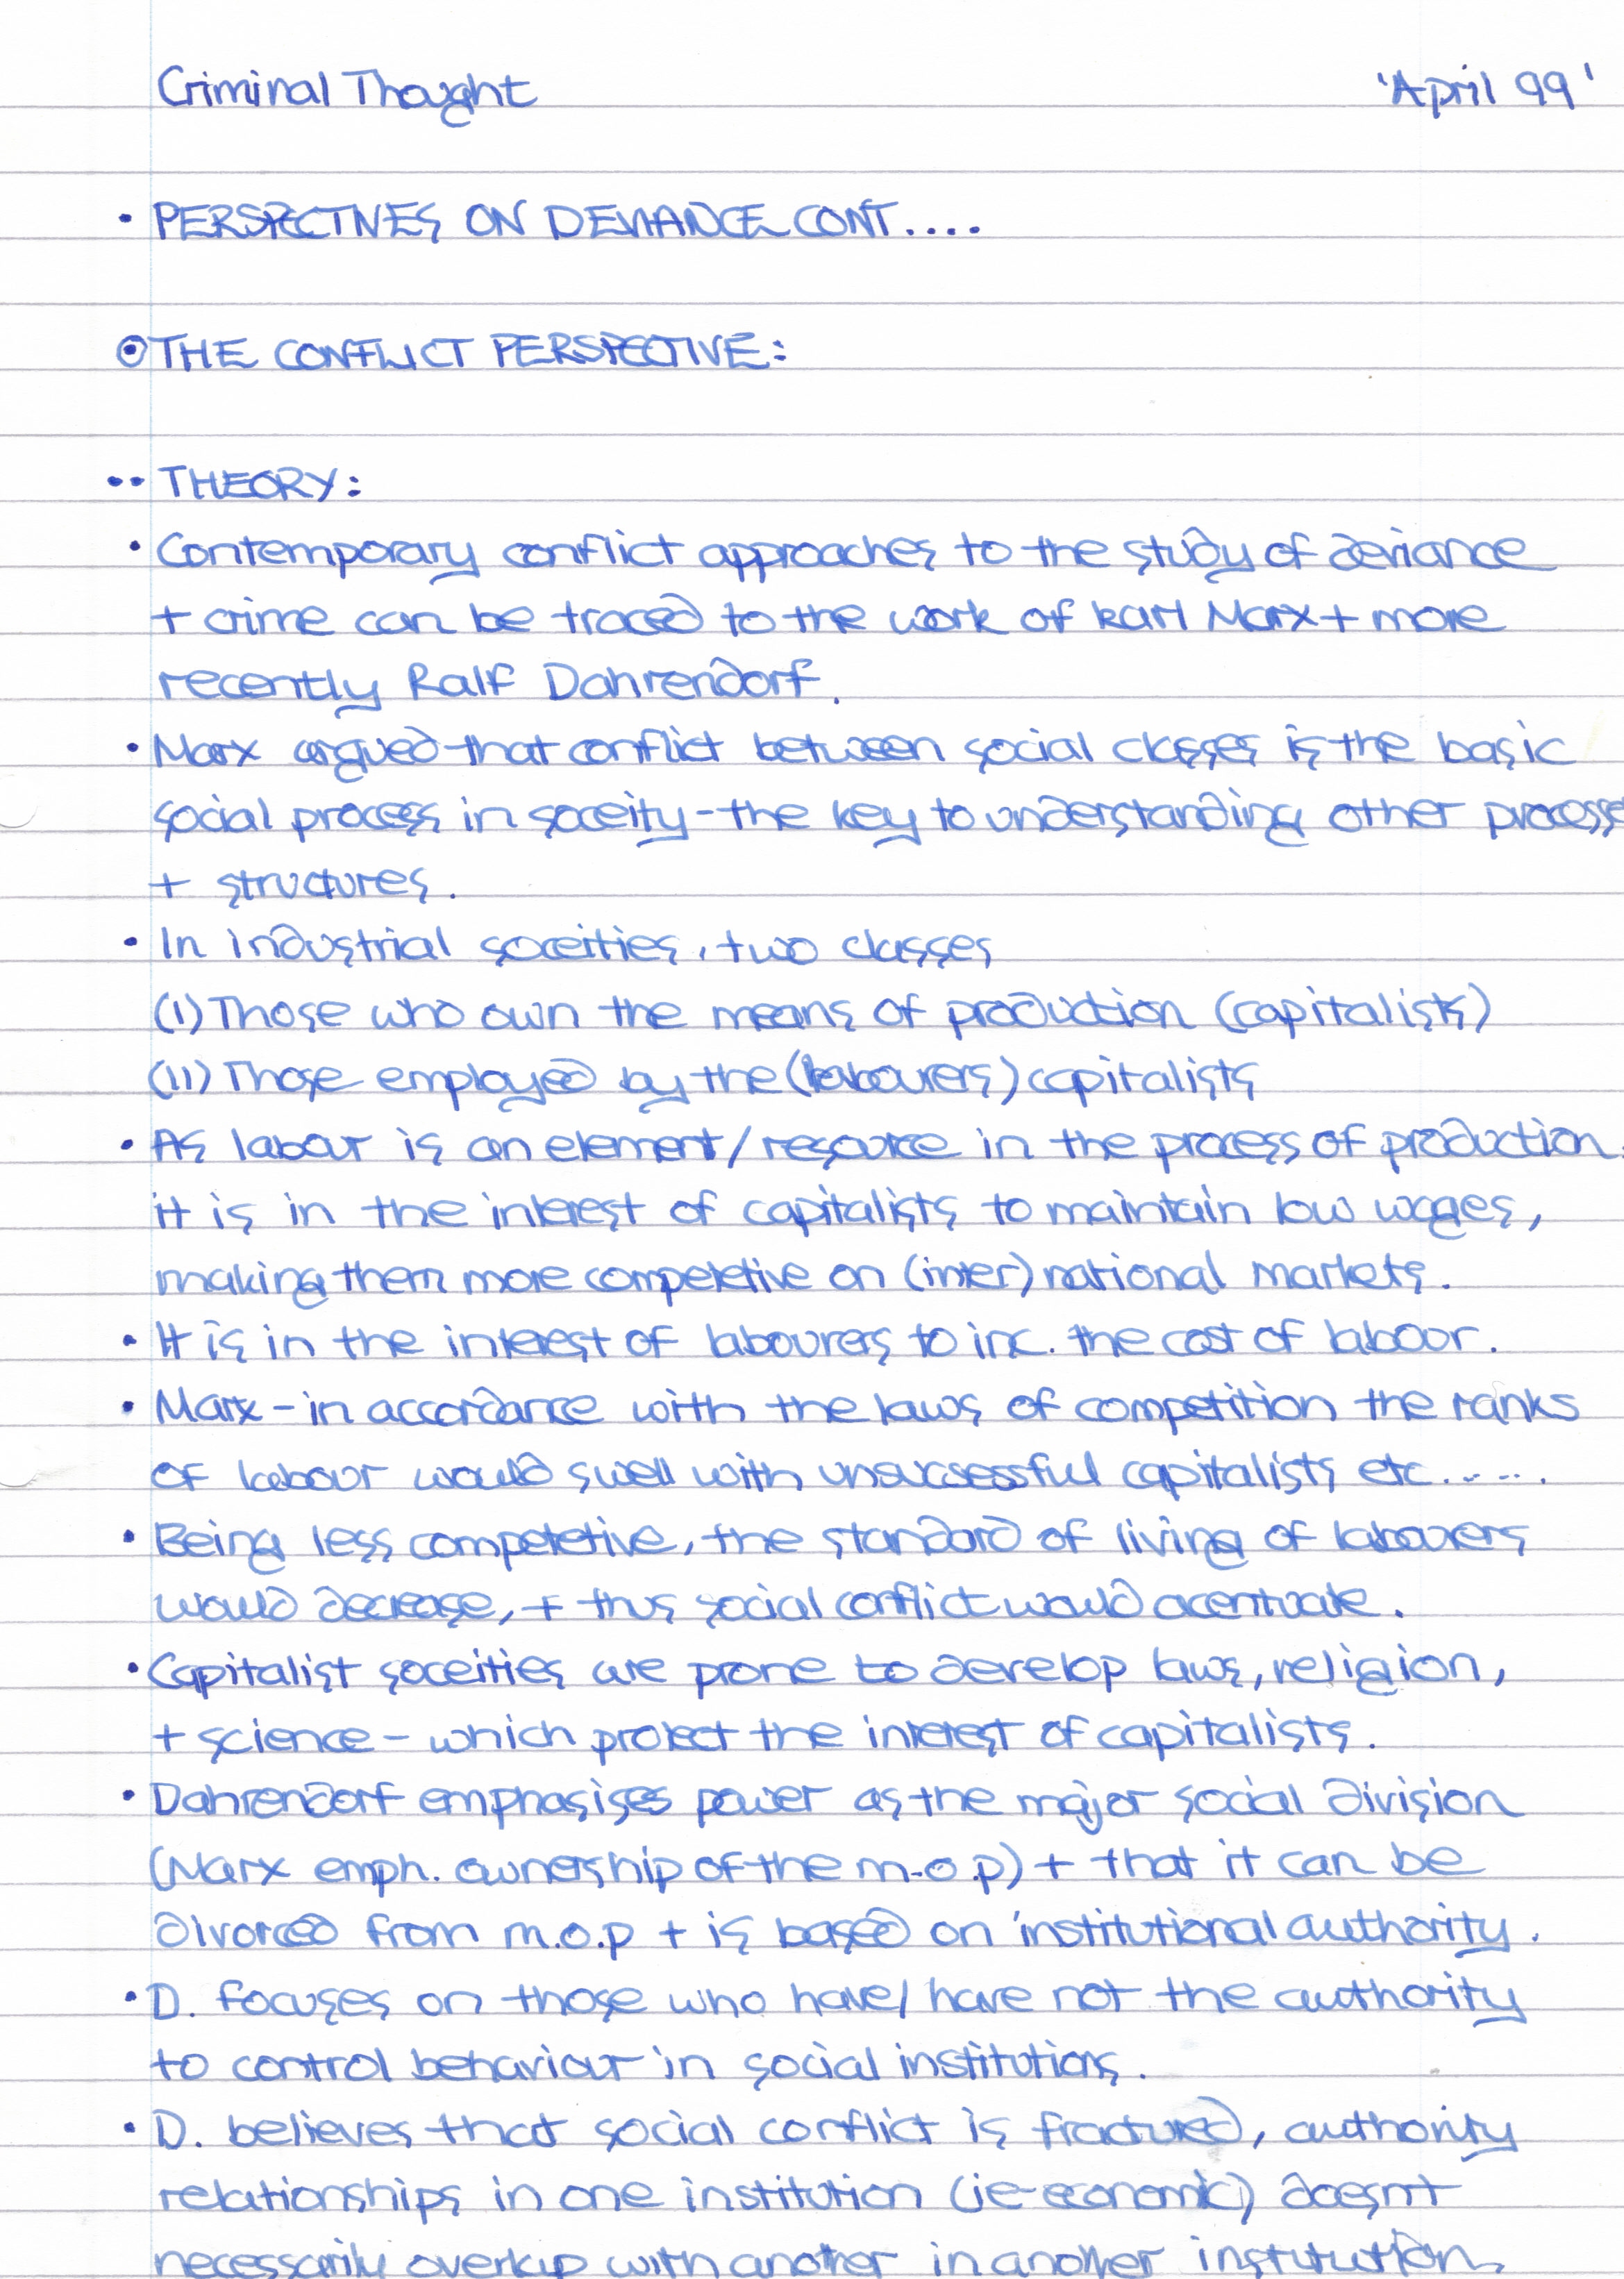 Criminal Thought 'April 99'
• PERSPECTIVES ON DEVIANCE CONT....
⊙ THE CONFLICT PERSPECTIVE:
•• THEORY:
• Contemporary conflict approaches to the study of deviance
+ crime can be traced to the work of Karl Marx + more
recently Ralf Dahrendorf.
• Marx argued that conflict between social classes is the basic
social process in soceity - the key to understanding other processe
+ structures.
• In industrial soceities, two classes
(I) Those who own the means of production (capitalists)
(II) Those employed by the (labourers) capitalists
• As labour is an element/resource in the process of production,
it is in the interest of capitalists to maintain low wages,
making them more competetive on (inter)national markets.
• It is in the interest of labourers to inc. the cost of labour.
• Marx - in accordance with the laws of competition the ranks
of labour would swell with unsucsessful capitalists etc......
• Being less competetive, the standard of living of labourers
would decrease, + thus social conflict would acentuate.
• Capitalist soceities are prone to develop laws, religion,
+ science - which protect the interest of capitalists.
• Dahrendorf emphasises power as the major social division
(Marx emph. ownership of the m.o.p) + that it can be
divorced from m.o.p + is based on 'institutional authority.
• D. focuses on those who have/have not the authority
to control behaviour in social institutions.
• D. believes that social conflict is fractured, authority
relationships in one institution (ie-economic) doesnt
necessarily overlap with another in another institution.